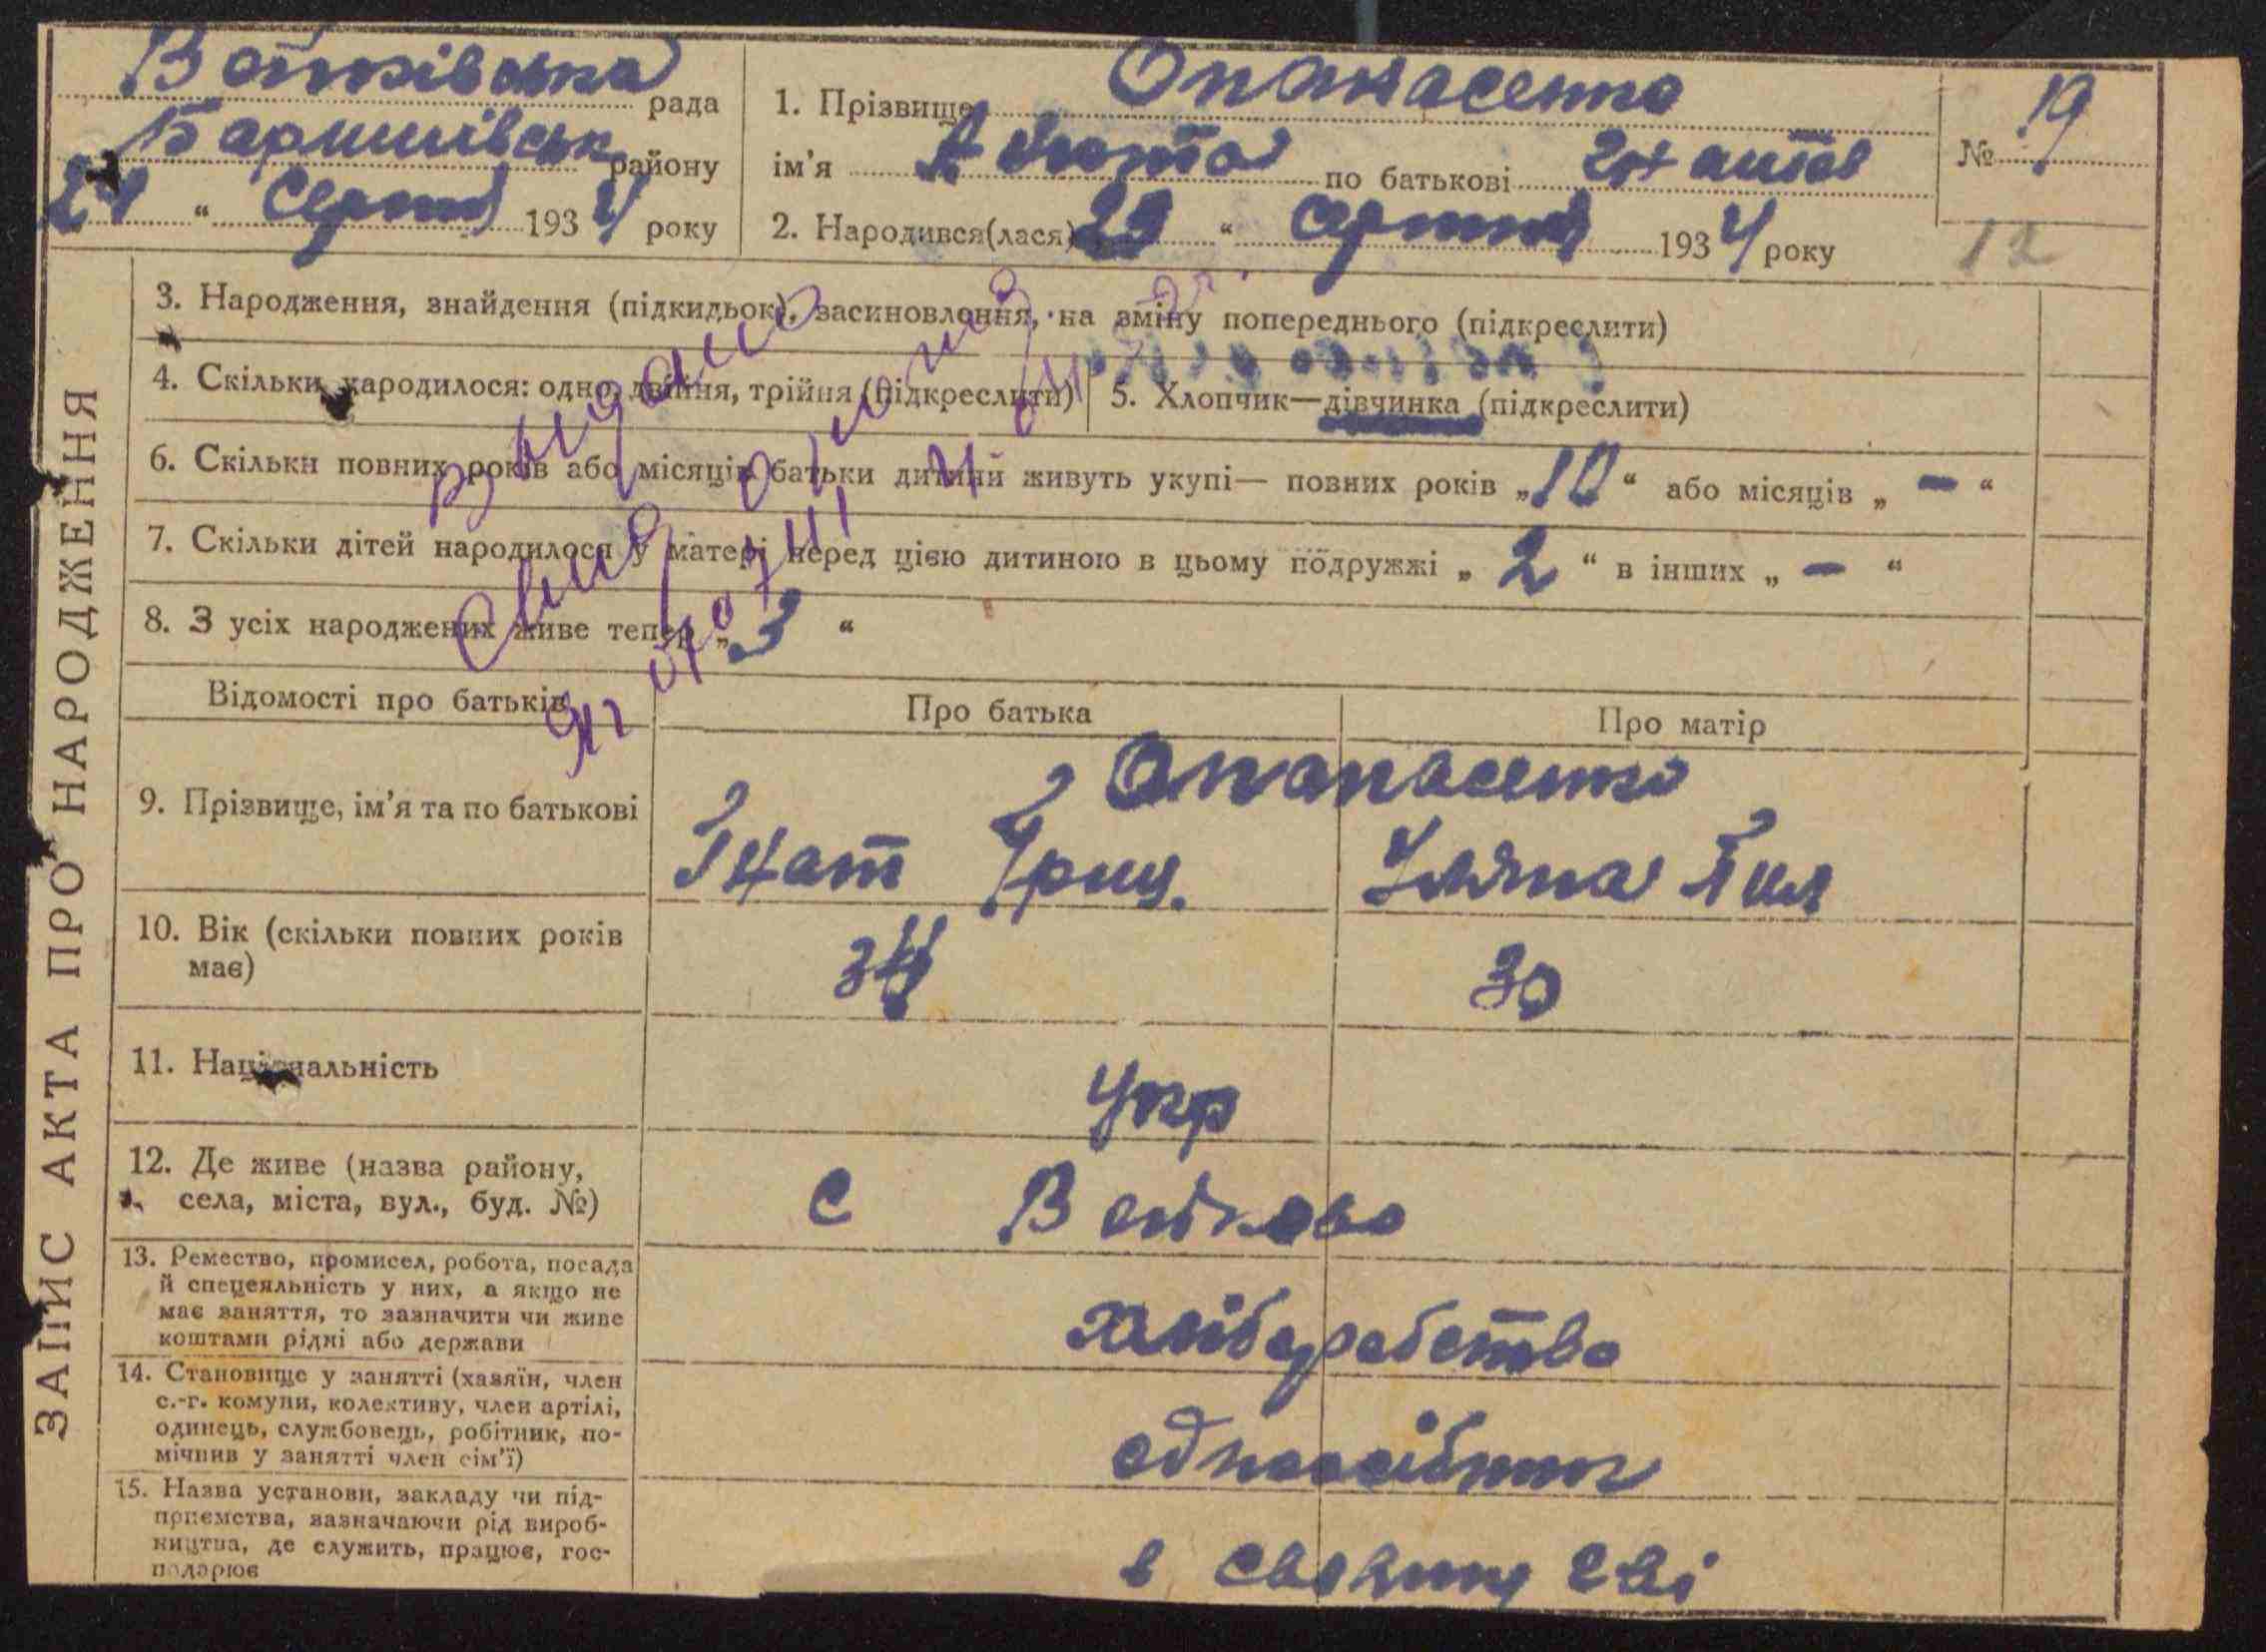 Войківська рада
Баришівськ району
24 " Серпня 1934 року
1. Прізвище Опанасенко
ім'я по батькові
№ 19
2. Народився(лася) 23 " серпня 1934 року
12
ЗАПИС АКТА ПРО НАРОДЖЕННЯ
3. Народження, знайдення (підкидьок), засиновлення, на зміну попереднього (підкреслити)
4. Скільки народилося: одно, двійня, трійня (підкреслити)
5. Хлопчик—дівчинка (підкреслити)
6. Скільки повних років або місяців батьки дитини живуть укупі— повних років „10“ або місяців „ — “
7. Скільки дітей народилося у матері перед цією дитиною в цьому подружжі „ 2 “ в інших „ — “
8. З усіх народжених живе тепер „ 3 “
Видано
Відомості про батьків
Про батька
Про матір
9. Прізвище, ім'я та по батькові
Опанасенко
Ігнат Гриц.
Уляна Пил
10. Вік (скільки повних років
має)
34
30
11. Національність
Укр
12. Де живе (назва району,
села, міста, вул., буд. №)
с Войково
13. Ремество, промисел, робота, посада
й спецеяльність у них, а якщо не
має заняття, то зазначити чи живе
коштами рідні або держави
хліборобство
14. Становище у занятті (хазяїн, член
с.-г. комуни, колективу, член артілі,
одинець, службовець, робітник, по-
мічнив у занятті член сім'ї)
одноосібник
15. Назва установи, закладу чи під-
приємства, зазначаючи рід вироб-
ництва, де служить, працює, гос-
подарює
в своему